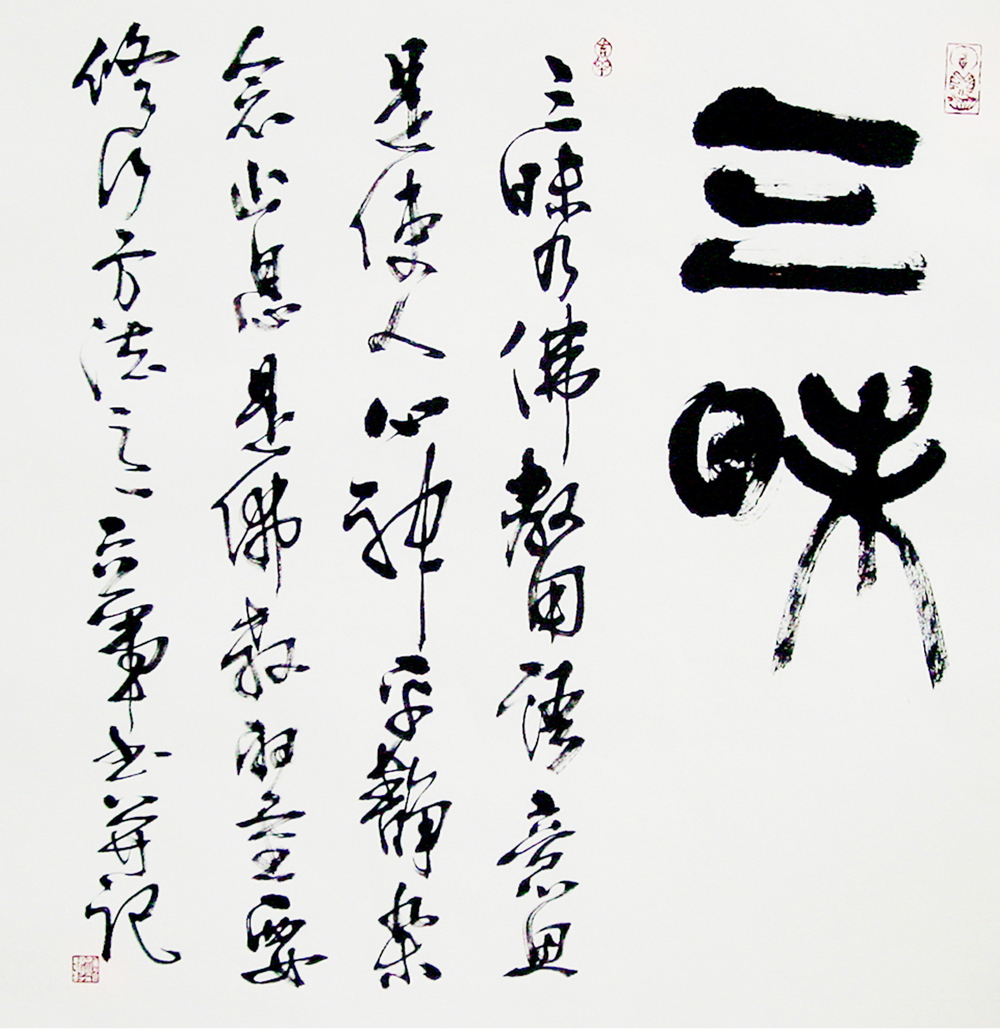 三昧
三昧乃佛教用語意思
是使人心神平靜杂
念止息是佛教的重要
修行方法之一 軍书并记